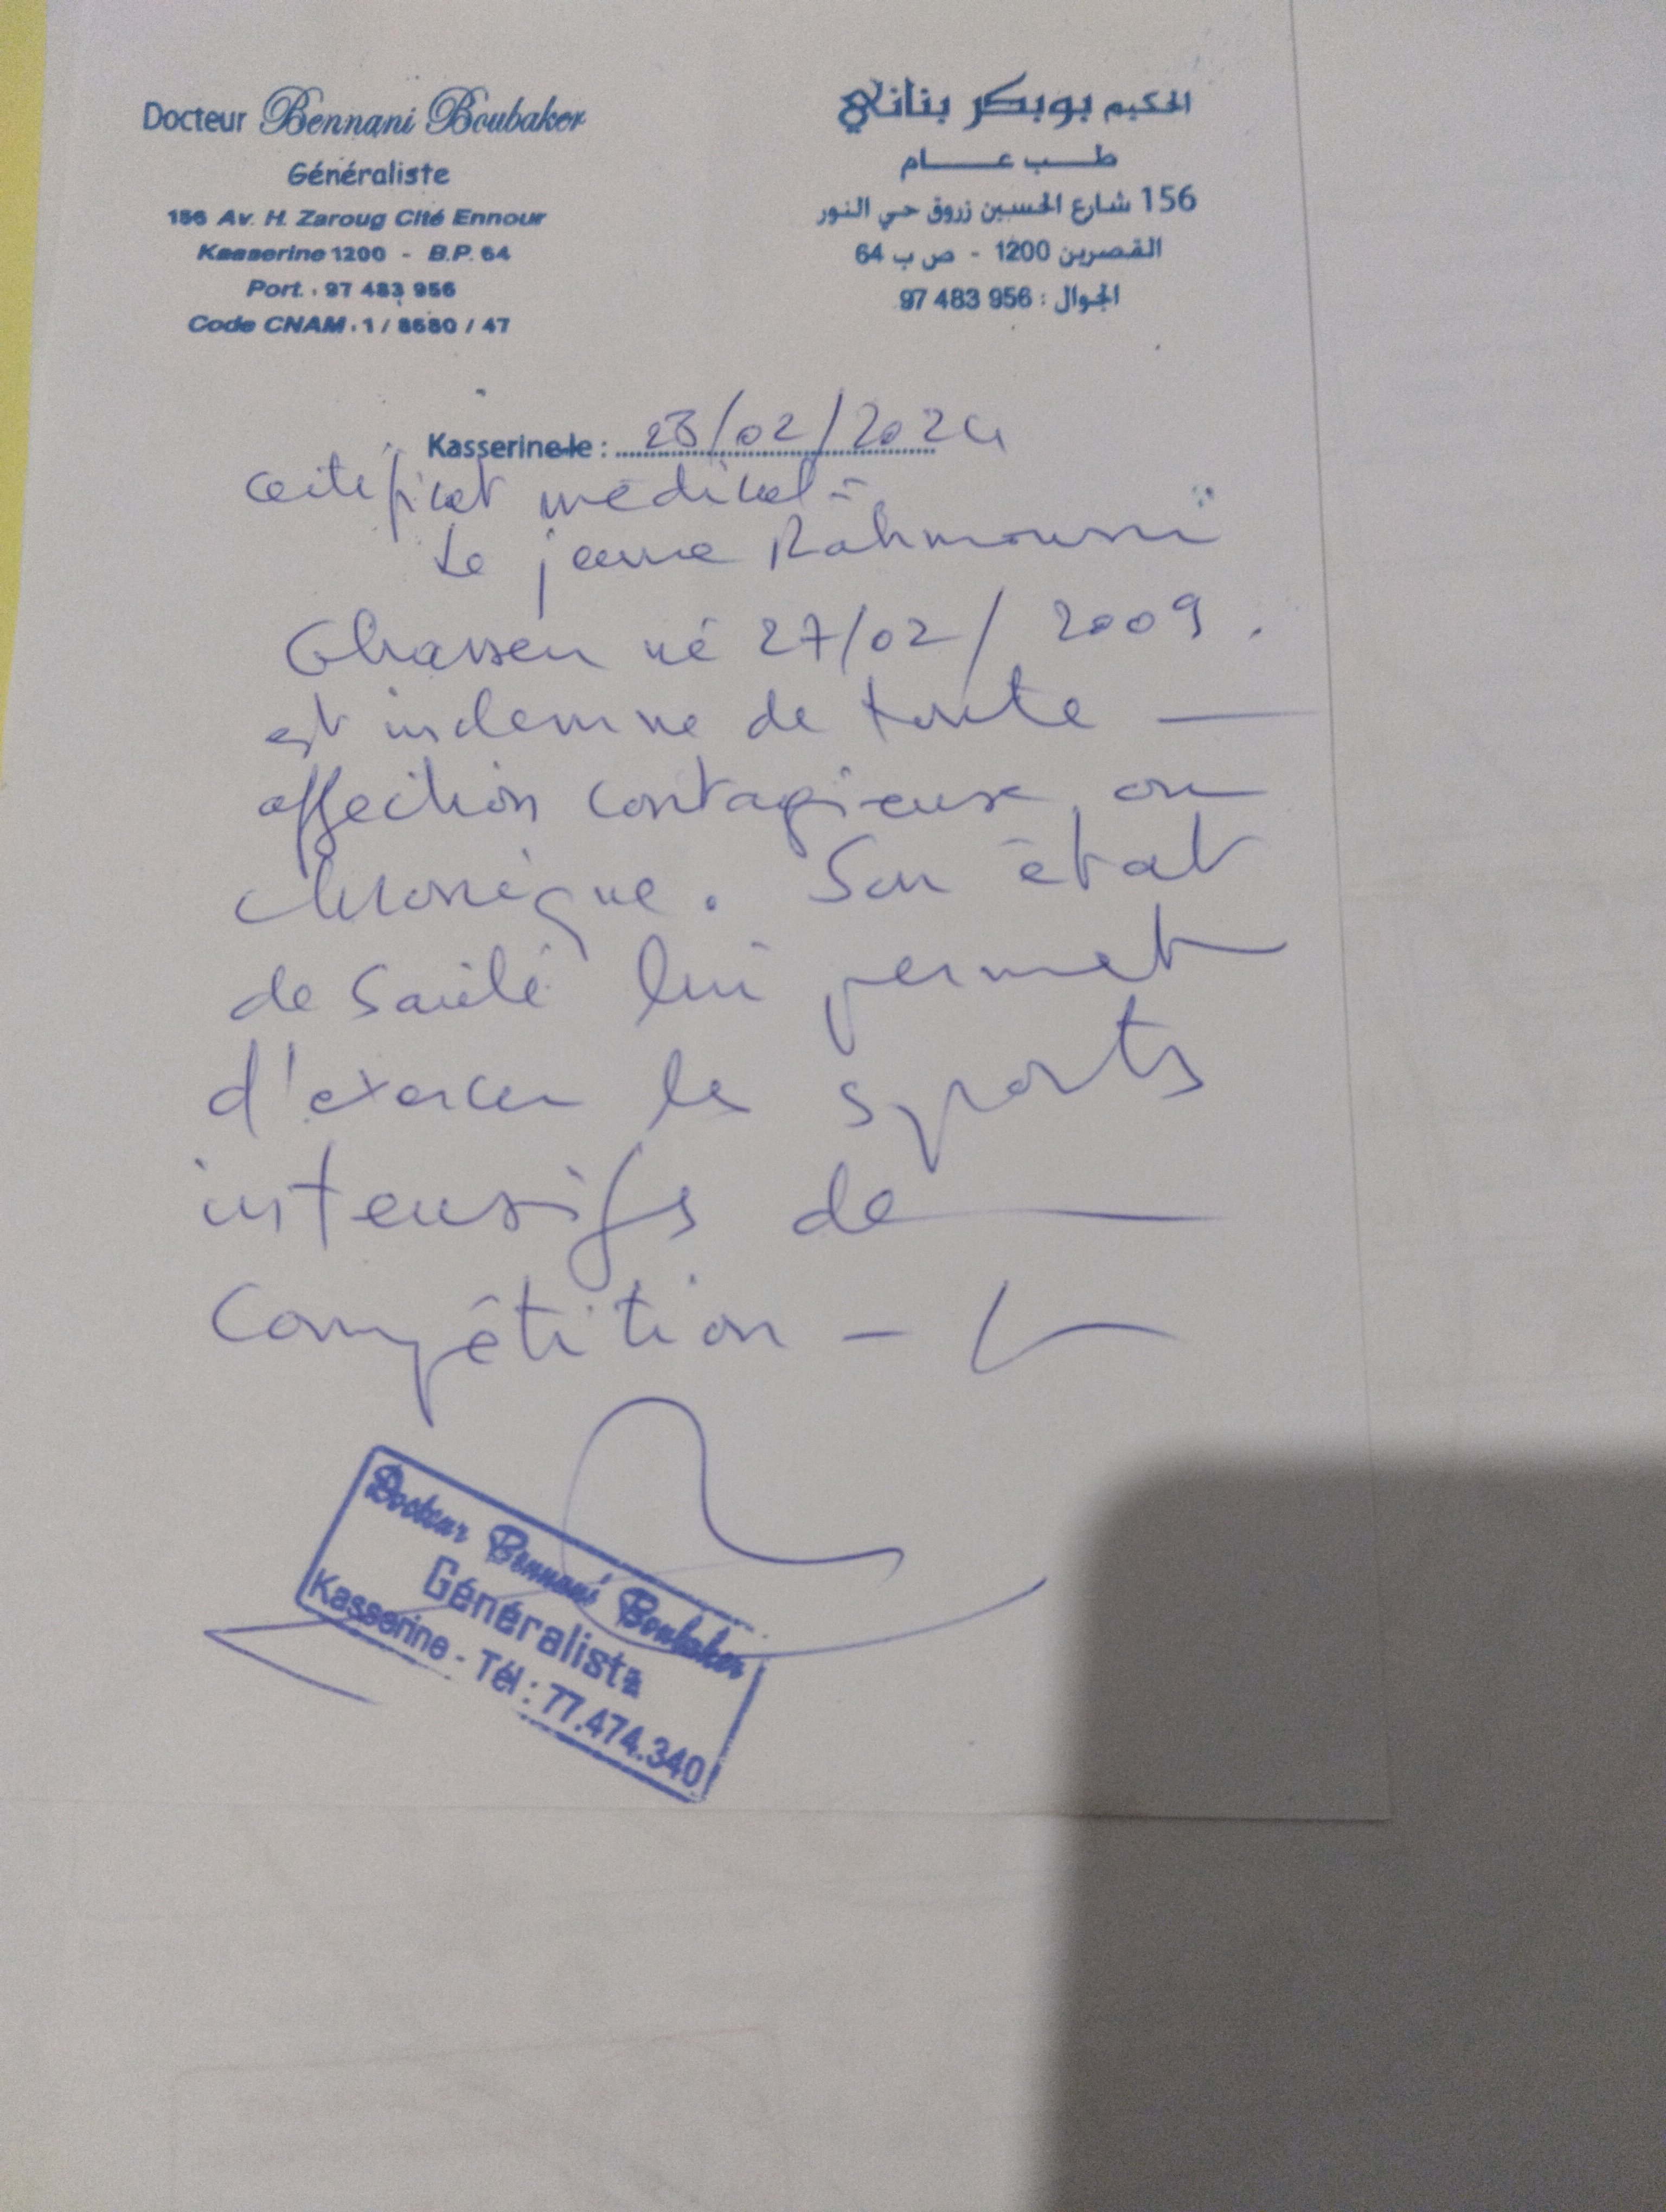 Docteur Bennani Boubaker
Généraliste
156 Av. H. Zaroug Cité Ennour
Kasserine 1200 - B.P. 64
Port. : 97 483 956
Code CNAM : 1 / 8580 / 47
الحكيم بوبكر بناني
طب عام
156 شارع الحسين زروق حي النور
القصرين 1200 - ص ب 64
الجوال : 956 483 97
Kasserine le : 23/02/2024
Certificat médical -
Le jeune Rahmouni
Ghassen né 27/02/2009.
est indemne de toute
affection contagieuse ou
chronique. Son état
de santé lui permet
d'exercer les sports
intensifs de
compétition -
Docteur Bennani Boubaker
Généraliste
Kasserine - Tél : 77.474.340